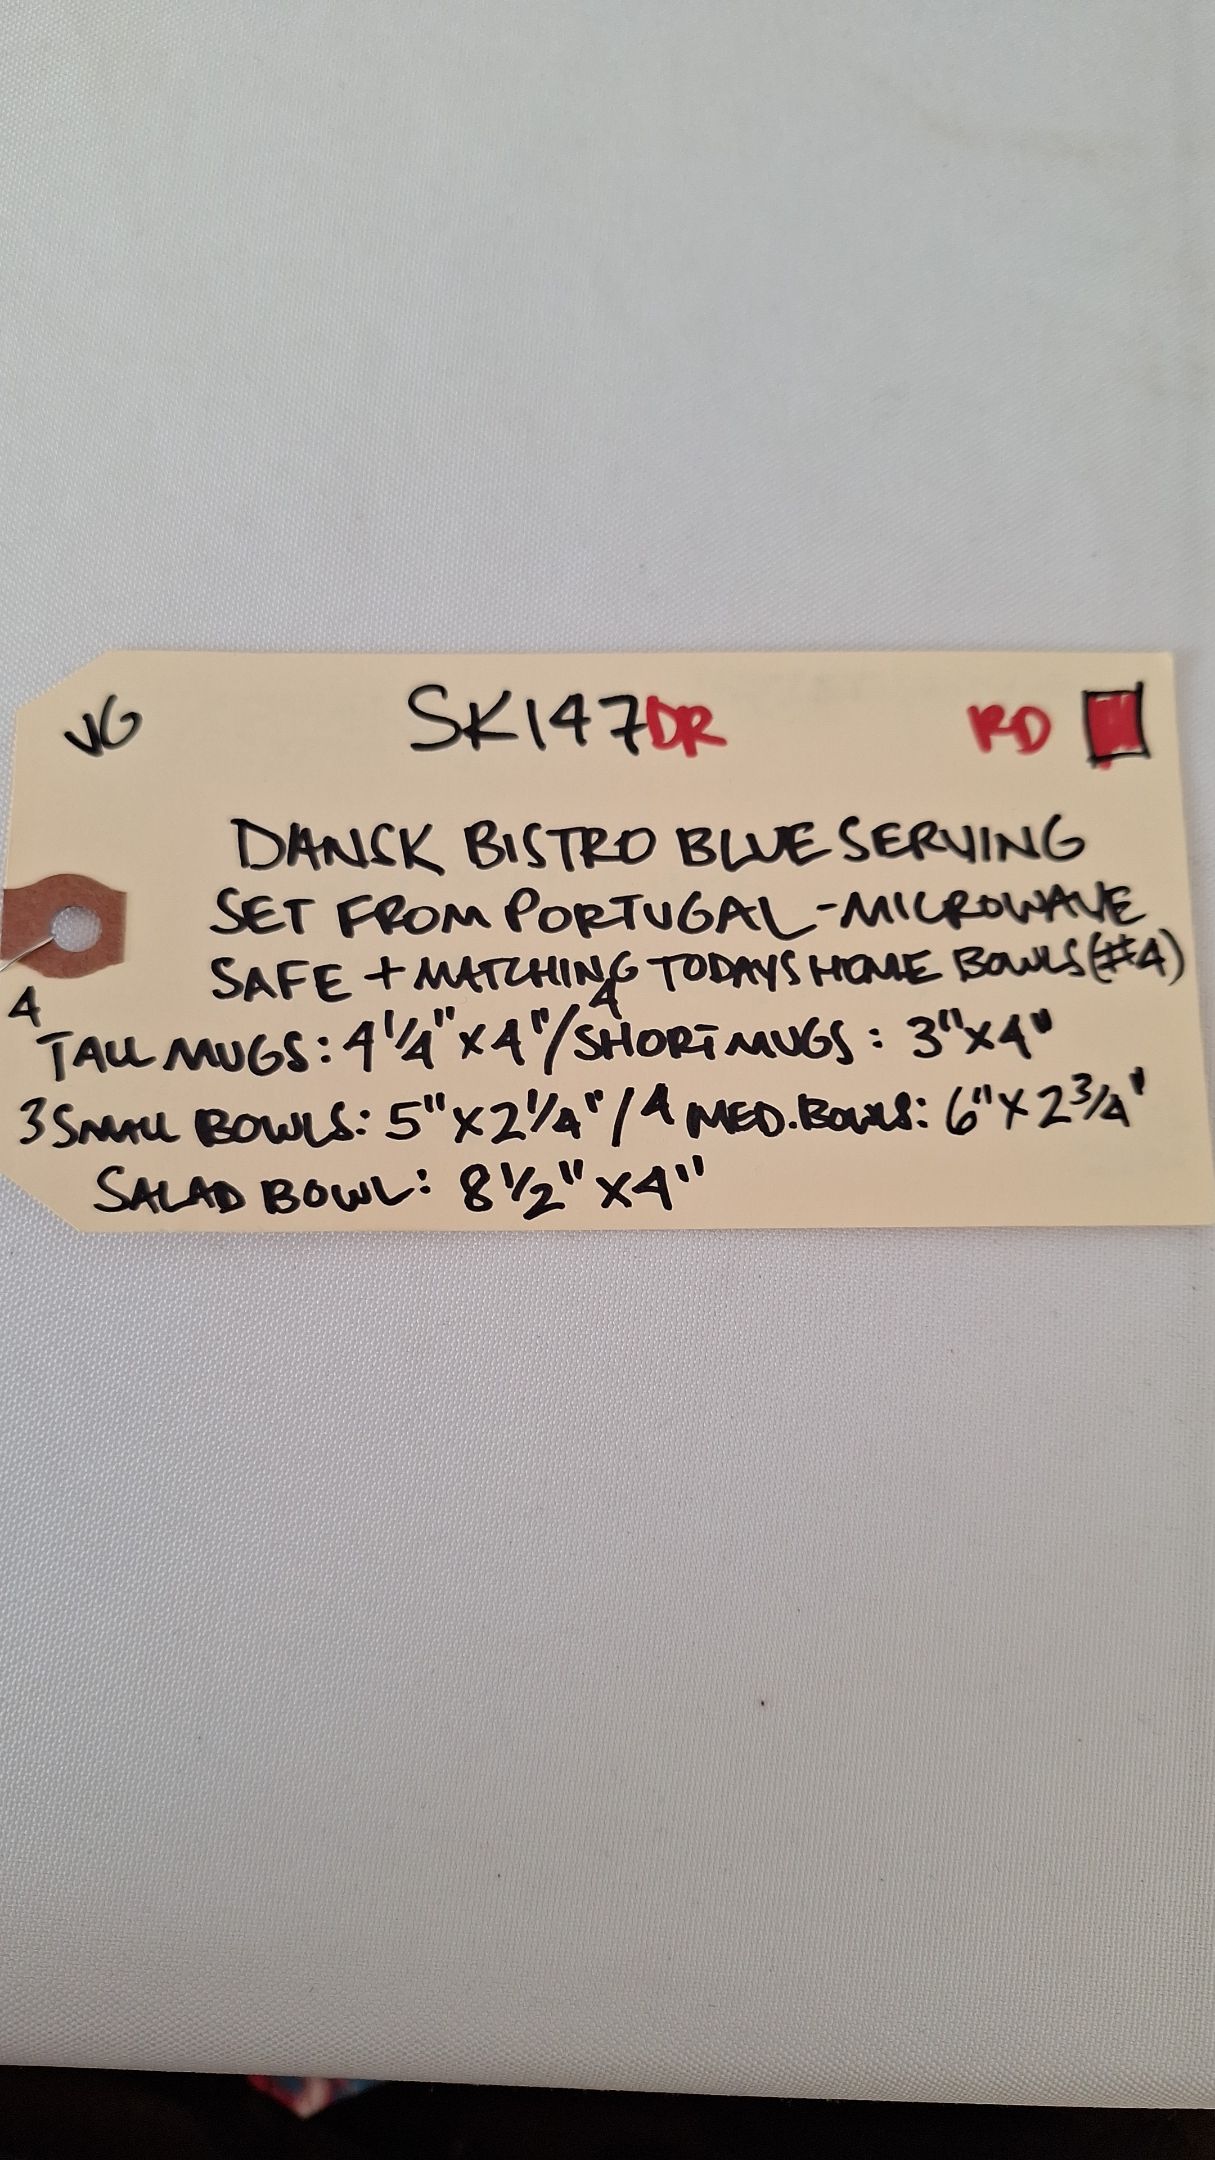 VG SK147DR RD
DANSK BISTRO BLUE SERVING
SET FROM PORTUGAL - MICROWAVE
SAFE + MATCHING TODAYS HOME BOWLS (#4)
4 TALL MUGS: 4 1/4" X 4" / 4 SHORT MUGS: 3" X 4"
3 SMALL BOWLS: 5" X 2 1/4" / 4 MED. BOWLS: 6" X 2 3/4"
SALAD BOWL: 8 1/2" X 4"